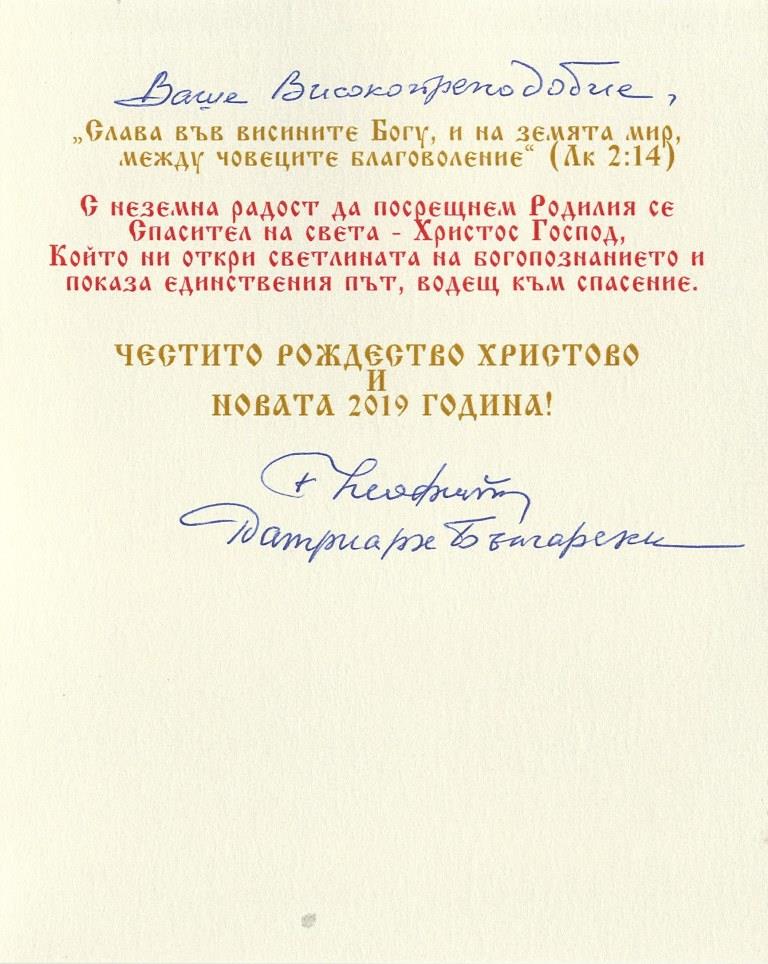 Ваше Високопреподобие,
„Слава във висините Богу, и на земята мир,
между човеците благоволение“ (Лк 2:14)
С неземна радост да посрещнем Родилия се
Спасител на света - Христос Господ,
Който ни откри светлината на богопознанието и
показа единствения път, водещ към спасение.
ЧЕСТИТО РОЖДЕСТВО ХРИСТОВО
И
НОВАТА 2019 ГОДИНА!
† Неофит
Патриарх Български